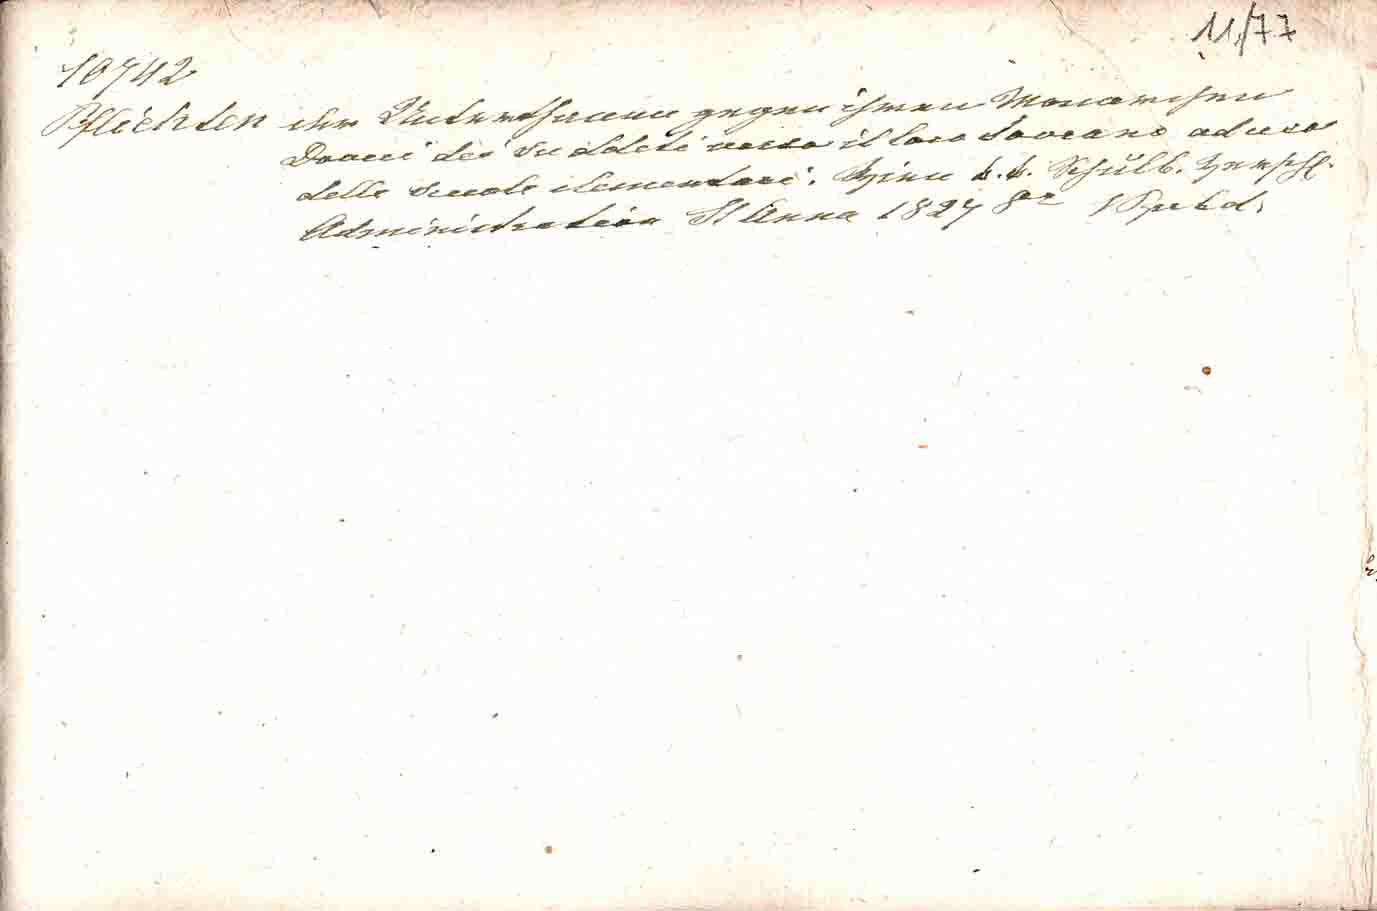 11/77
10742
Pflichten der Unterthanen gegen ihren Monarchen
Doveri dei sudditi verso il loro Sovrano ad uso
delle scuole elementari. Wien k. k. Schulb. Verschl.
Administration St Anna 1827 8º